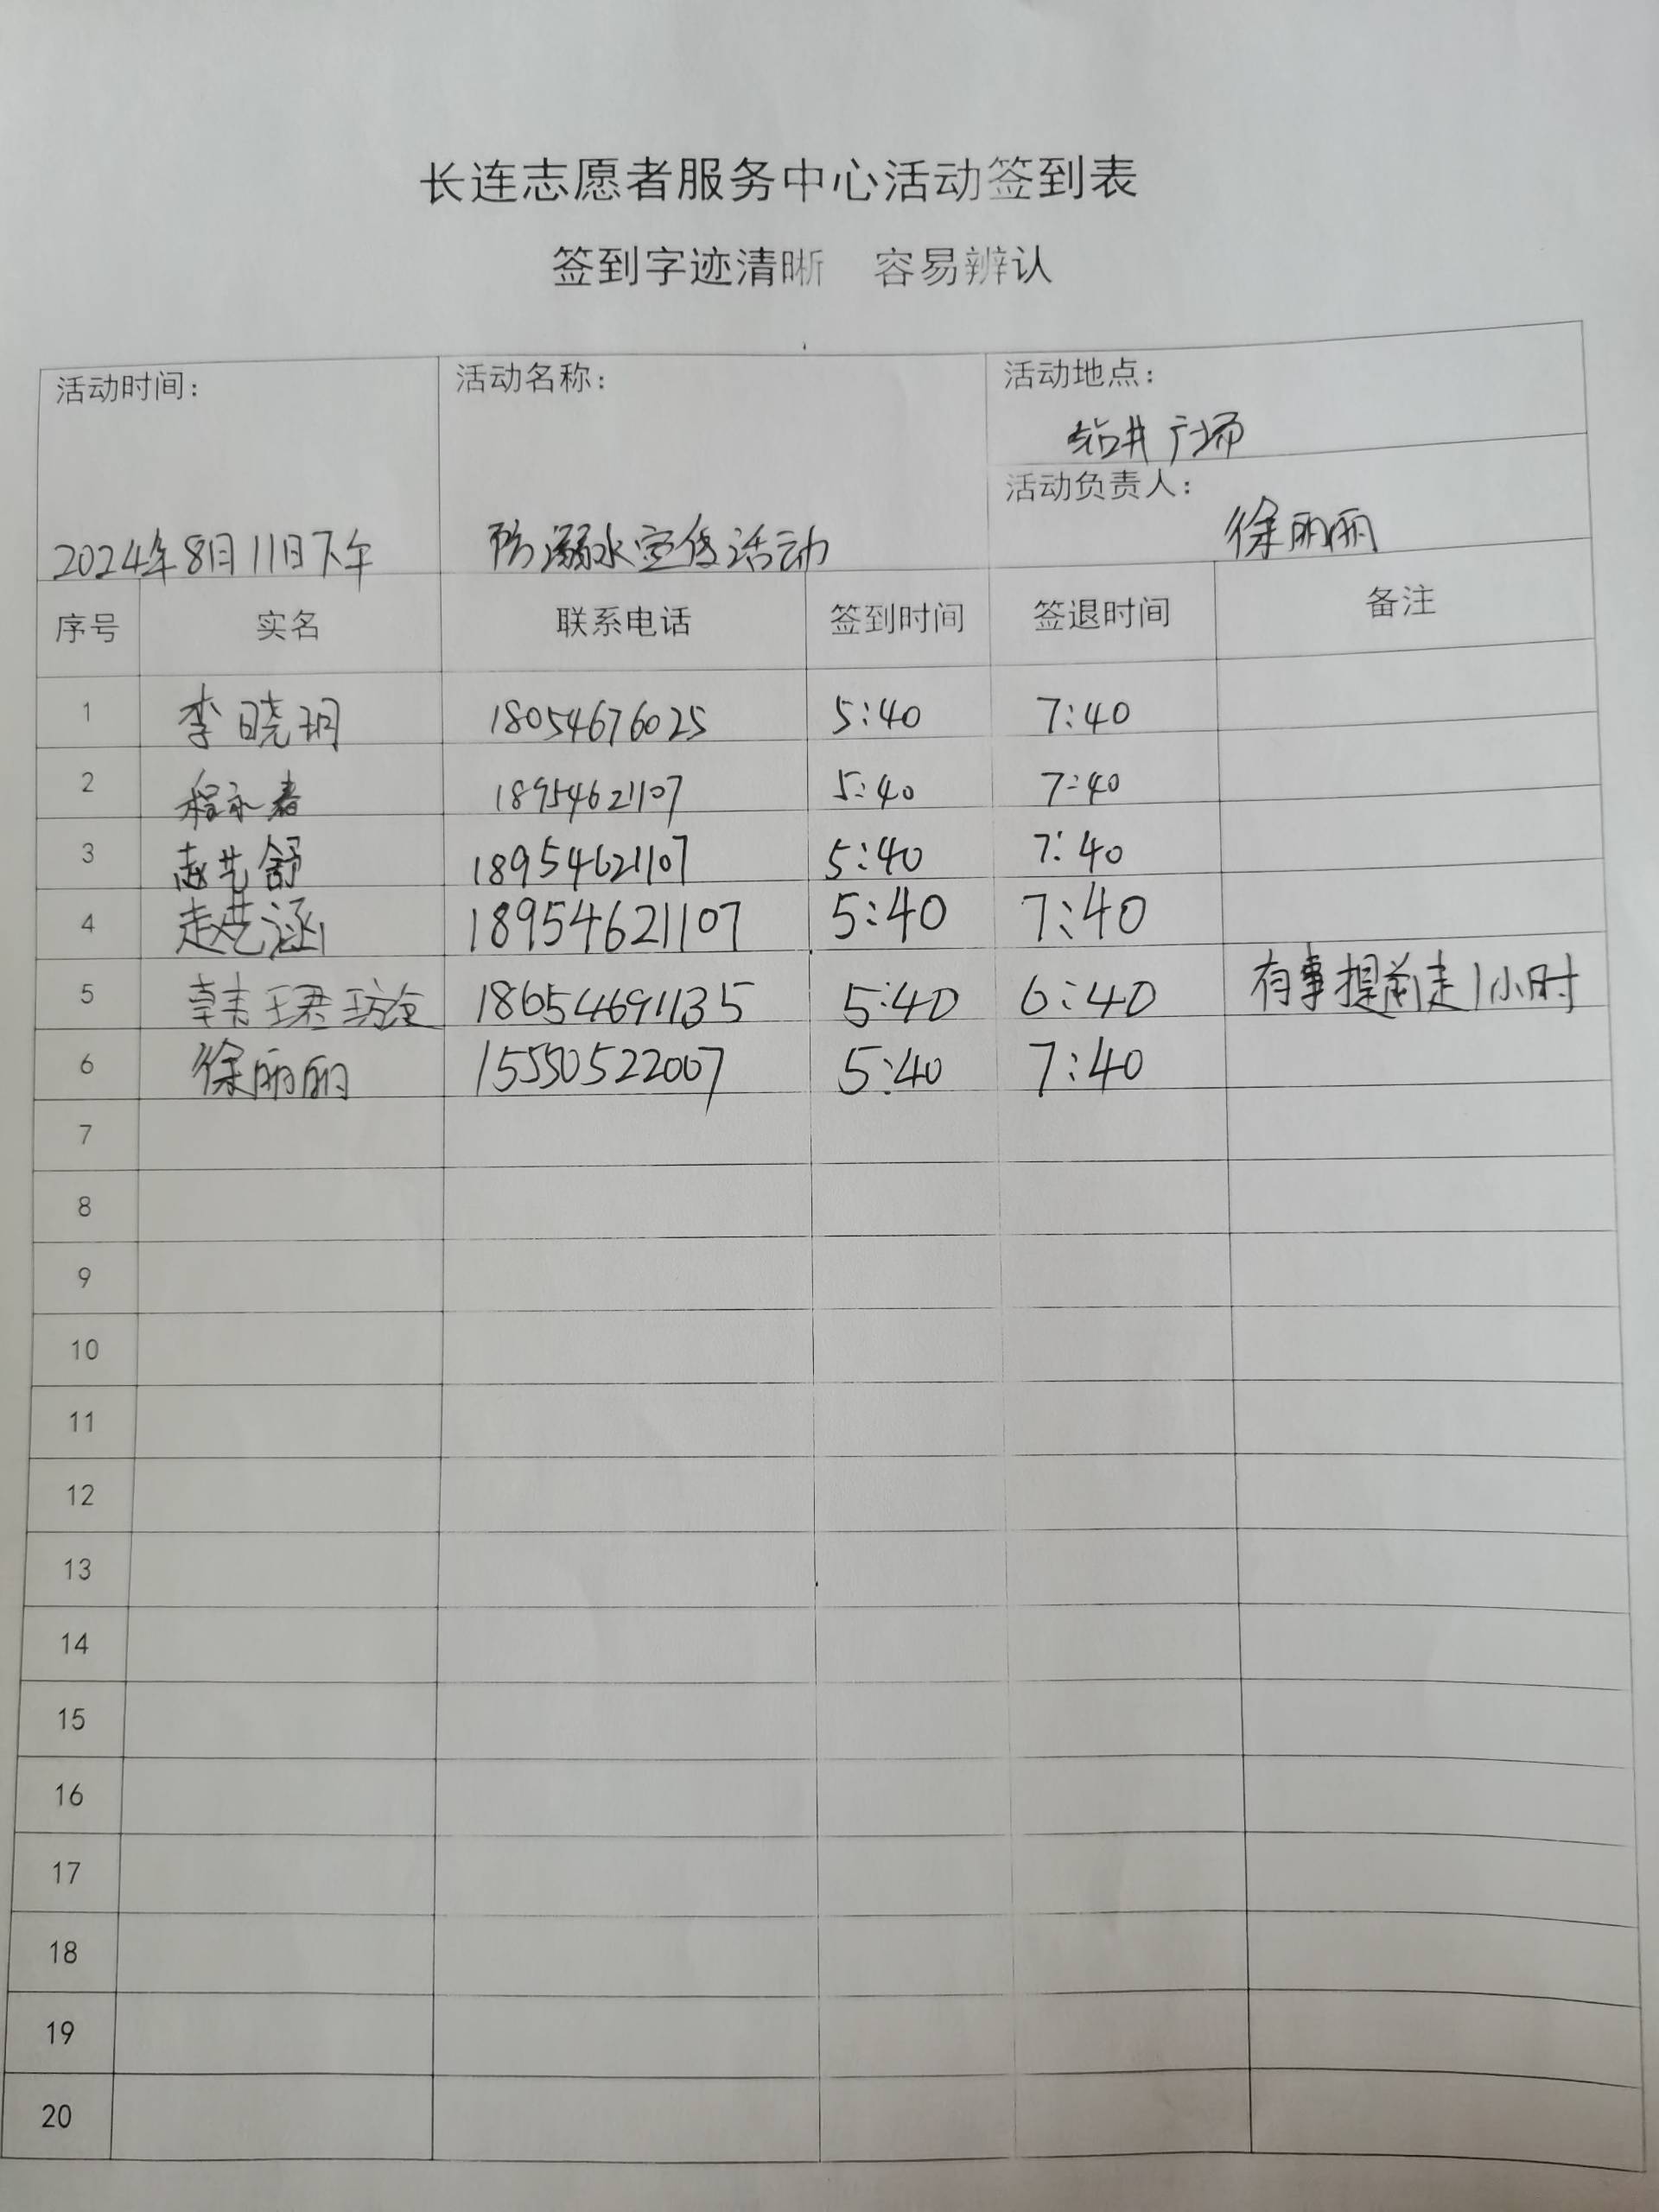 长连志愿者服务中心活动签到表
签到字迹清晰 容易辨认
活动时间: 活动名称: 活动地点:
钻井广场
活动负责人:
2024年8月11日下午 防溺水宣传活动 徐丽丽
序号 实名 联系电话 签到时间 签退时间 备注
1 李晓玥 18054676025 5:40 7:40
2 程永春 18954621107 5:40 7:40
3 赵艺舒 18954621107 5:40 7:40
4 赵艺涵 18954621107 5:40 7:40
5 韩珺璇 18654691135 5:40 6:40 有事提前走1小时
6 徐丽丽 15550522007 5:40 7:40
7
8
9
10
11
12
13
14
15
16
17
18
19
20